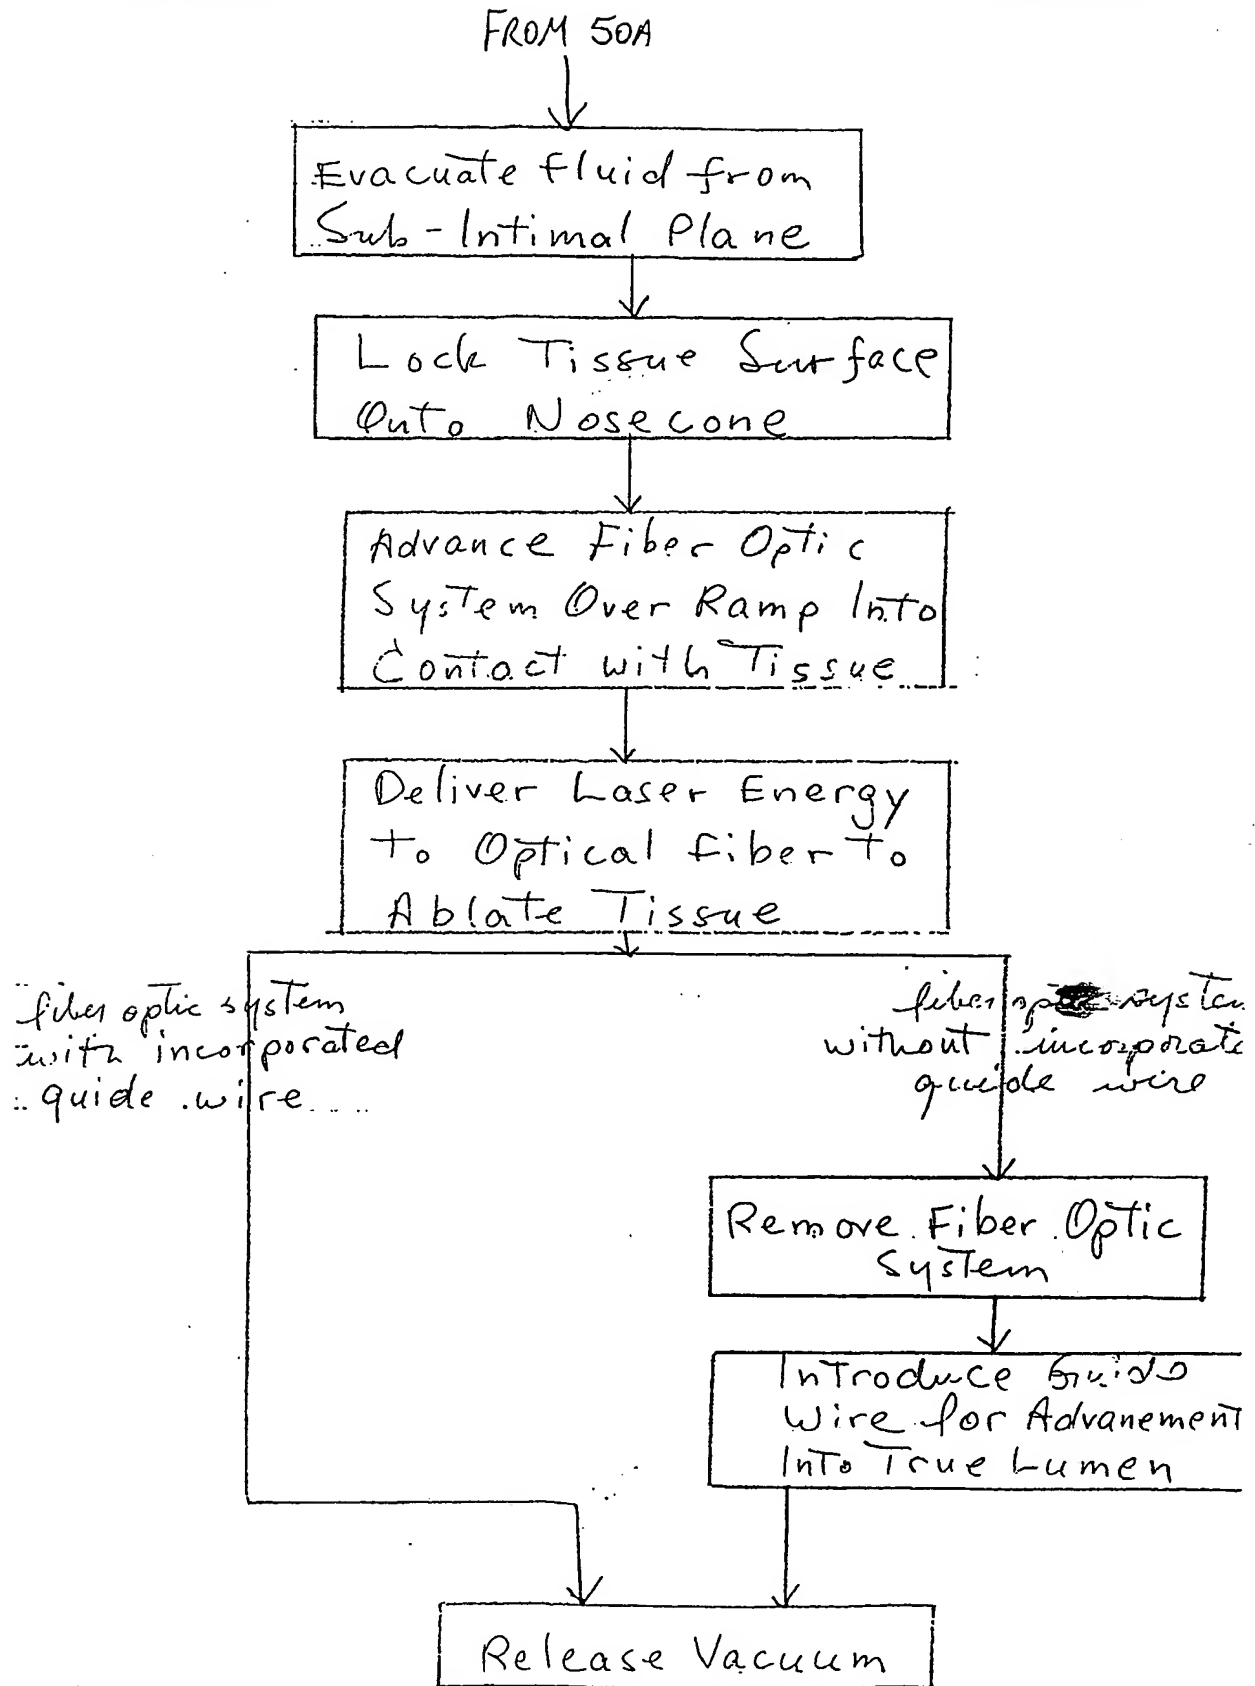 FROM 50A
Evacuate Fluid from
Sub-Intimal Plane
Lock Tissue Surface
Onto Nosecone
Advance Fiber Optic
System Over Ramp Into
Contact with Tissue
Deliver Laser Energy
To Optical Fiber To
Ablate Tissue
fiber optic system
with incorporated
guide wire
fiber system
without incorporate
guide wire
Remove Fiber Optic
System
Introduce Guide
Wire for Advanement
Into True Lumen
Release Vacuum